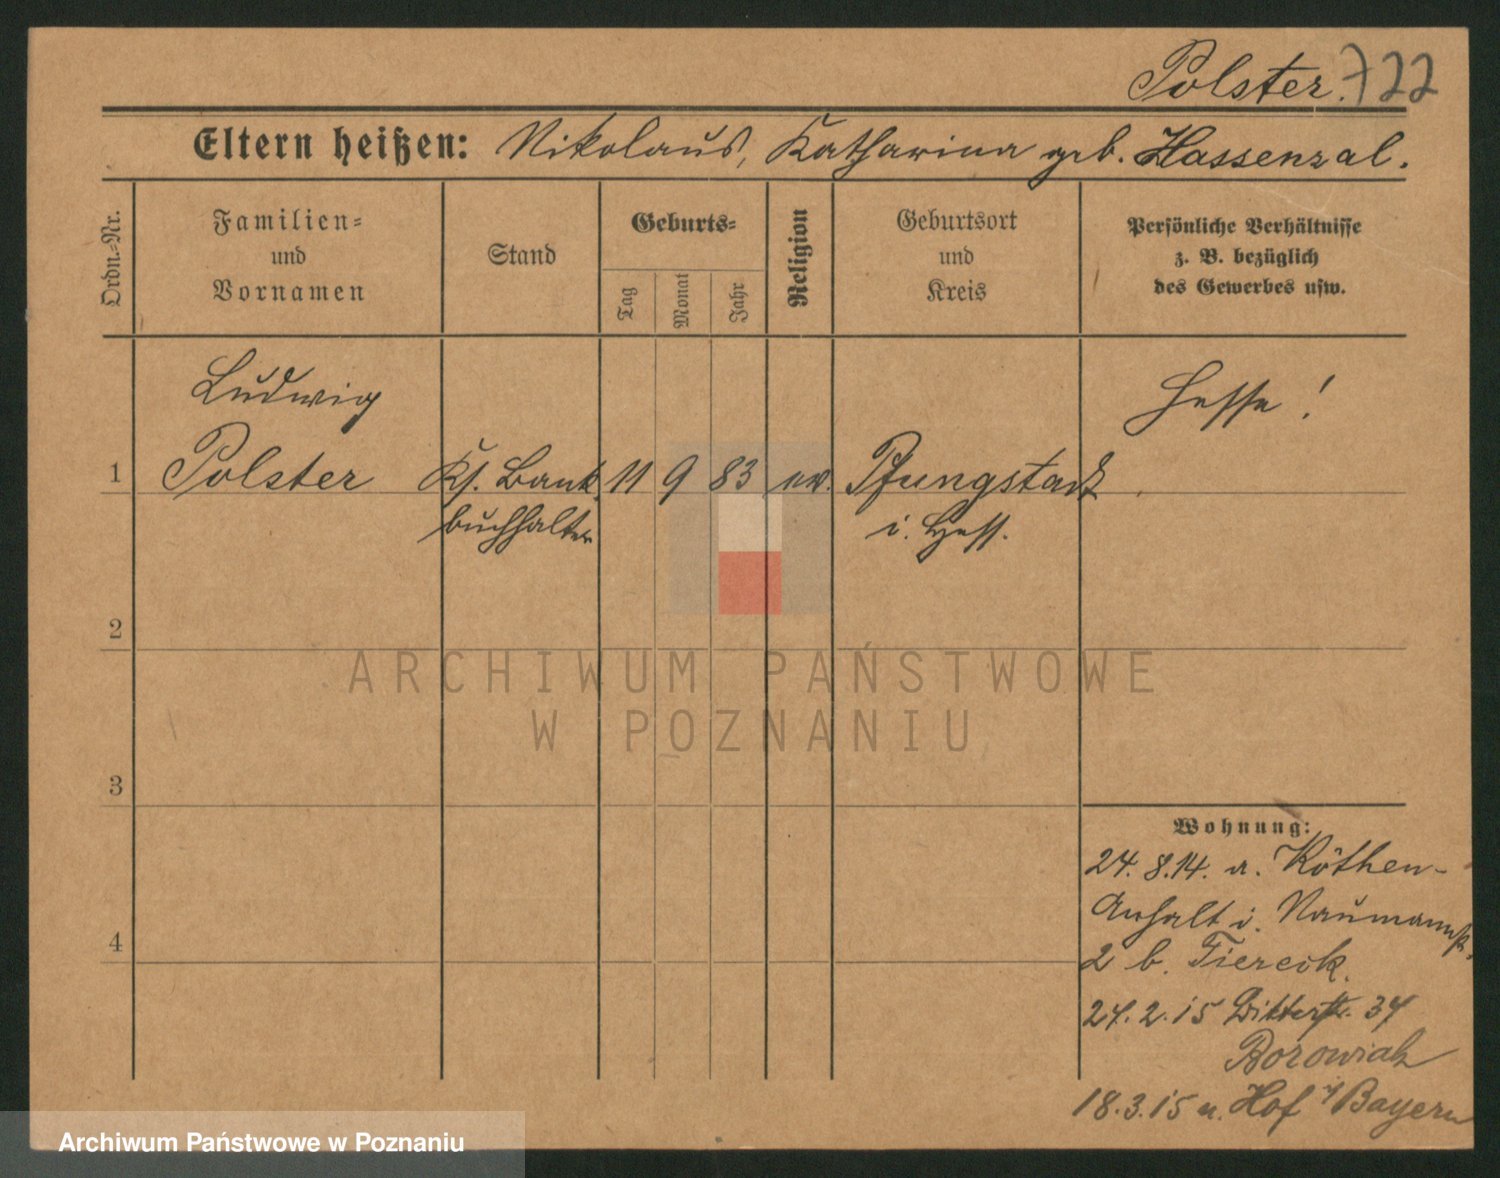 Polster. 722
Eltern heißen: Nikolaus, Katharina geb. Hassenzal.
Ordn.-Nr.
Familien-
und
Vornamen
Stand
Geburts-
Tag
Monat
Jahr
Religion
Geburtsort
und
Kreis
Persönliche Verhältnisse
z. B. bezüglich
des Gewerbes usw.
Ludwig
Hesse!
1 Polster Kf. Bank 11 9 83 ev. Pfungstadt
buchhalter i. Hess.
2
3
4
ARCHIWUM PAŃSTWOWE
W POZNANIU
Wohnung:
24. 8.14. a. Köthen-
Anhalt i. Naumannstr.
2 b. Tiereck.
24. 2. 15 Ritterstr. 34
Borowiak
18.3.15 n. Hof i/Bayern
Archiwum Państwowe w Poznaniu